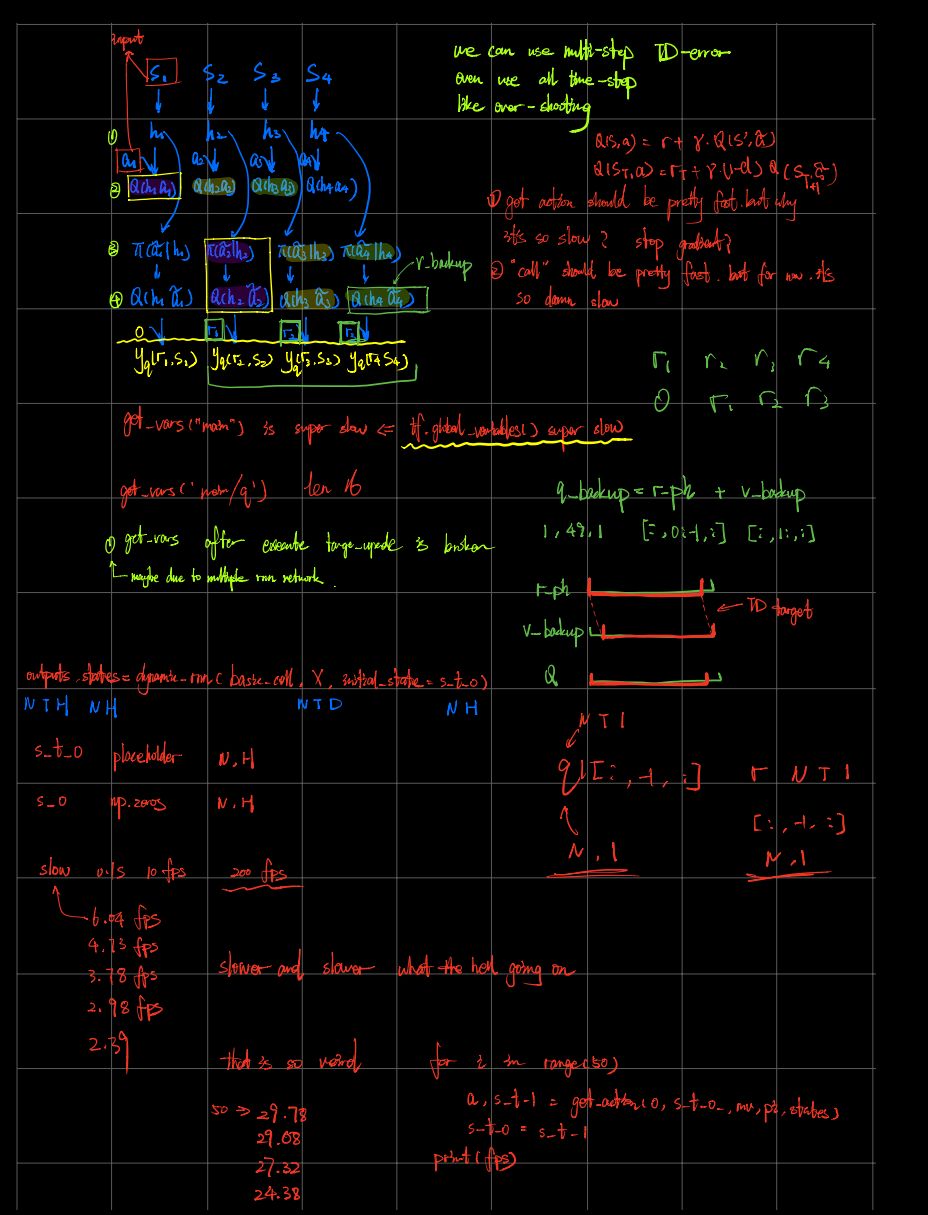 input
S₁ S₂ S₃ S₄
① h₁ h₂ h₃ h₄
a₁ a₂ a₃ a₄
② Q(h₁a₁) Q(h₂a₂) Q(h₃a₃) Q(h₄a₄)
③ π(ã₁|h₁) π(ã₂|h₂) π(ã₃|h₃) π(ã₄|h₄)
r_backup
④ Q(h₁ ã₁) Q(h₂ ã₂) Q(h₃ ã₃) Q(h₄ ã₄)
0 r₁ r₂
y_q(r₁,S₁) y_q(r₂,S₂) y_q(r₃,S₃) y_q(r₄S₄)
we can use multi-step TD-error
even use all time-step
like over-shooting
Q(S,a) = r + γ·Q(S',ã)
① get action should be pretty fast. but why
it's so slow? stop gradient?
② "call" should be pretty fast. but for now. it's
so damn slow
r₁ r₂ r₃ r₄
0 r₁ r₂ r₃
get_vars("main") is super slow ⇐ tf.global_variables() super slow
get_vars('main/q') len 16
① get_vars after execute is broken
maybe due to multiple rnn network.
q_backup = r-ph + v_backup
1,49,1 [:,0:-1,:] [:,1:,:]
r-ph
TD target
v_backup
Q
outputs, states = dynamic_rnn( basic_cell, X, initial_state = s_t_0)
NTH NH NTD NH
s_t_0 placeholder N,H
s_0 np.zeros N,H
NT1
q1[:,-1,:] r NT1
[:,-1,:]
N,1 N,1
slow 0.1s 10 fps 200 fps
6.04 fps
4.73 fps
3.78 fps
2.98 fps
2.39
slower and slower what the hell going on
that is so weird
for i in range(50)
a, s_t-1 = get_action(0, s_t_0, mu, pi, states)
s_t_0 = s_t-1
print(fps)
50 ⇒ 29.78
29.08
27.32
24.38